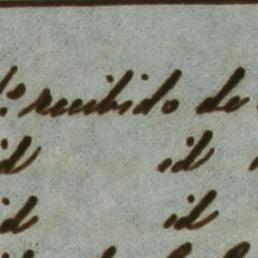 recibido de
id id
id id